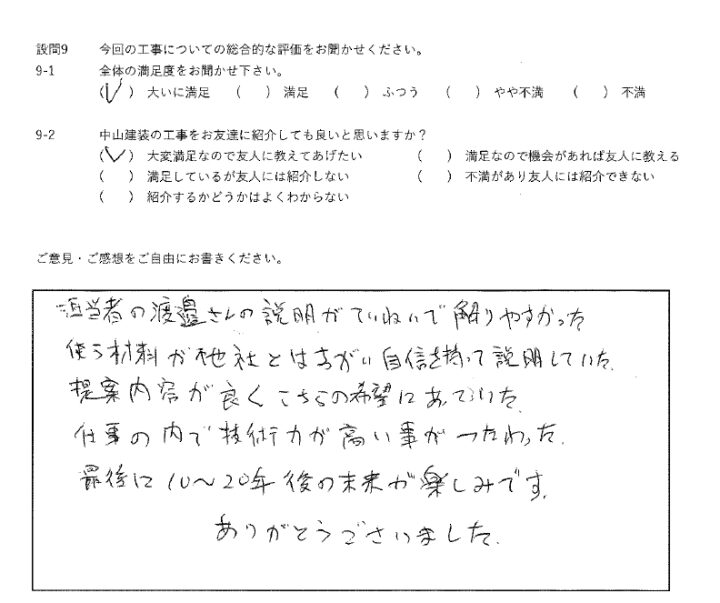 設問9 今回の工事についての総合的な評価をお聞かせください。
9-1 全体の満足度をお聞かせ下さい。
(✓) 大いに満足 ( ) 満足 ( ) ふつう ( ) やや不満 ( ) 不満
9-2 中山建装の工事をお友達に紹介しても良いと思いますか？
(✓) 大変満足なので友人に教えてあげたい ( ) 満足なので機会があれば友人に教える
( ) 満足しているが友人には紹介しない ( ) 不満があり友人には紹介できない
( ) 紹介するかどうかはよくわからない
ご意見・ご感想をご自由にお書きください。
担当者の渡邉さんの説明がていねいで解りやすかった
使う材料が他社とはちがい自信を持って説明していた.
提案内容が良くこちらの希望にあっていた.
仕事の内で技術力が高い事がつたわった.
最後に10〜20年後の未来が楽しみです.
ありがとうございました.